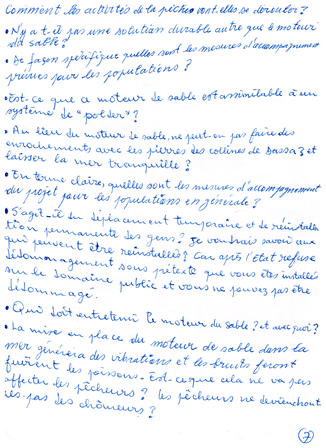 Comment les activités de la pêche vont-elles se dérouler ?
• N'y a t-il pas une solution durable autre que le moteur
du sable ?
• De façon spécifique quelles sont les mesures d'accompagnement
prévues pour les populations ?
• Est-ce que ce moteur de sable est assimilable à un
système de "polder" ?
• Au lieu du moteur de sable, ne peut-on pas faire des
enrochements avec les pierres des collines de Dassa ? et
laisser la mer tranquille ?
• En terme claire, quelles sont les mesures d'accompagnement
du projet pour les populations en générale ?
• S'agit-il du déplacement temporaire et de réinstalla
tion permanente des gens ? Je voudrais savoir ceux
qui peuvent être réinstallés ? Car après l'état refuse
dédommagement sous prétexte que vous êtes installés
sur le domaine public et vous ne pouvez pas être
dédommagé.
• Qui doit entretenir le moteur du sable ? et avec quoi ?
• La mise en place du moteur de sable dans la
mer générera des vibrations et les bruits feront
fuirent les poissons. Est-ce que cela ne va pas
affecter les pêcheurs ? les pêcheurs ne deviendront
ils pas des chômeurs ?
7